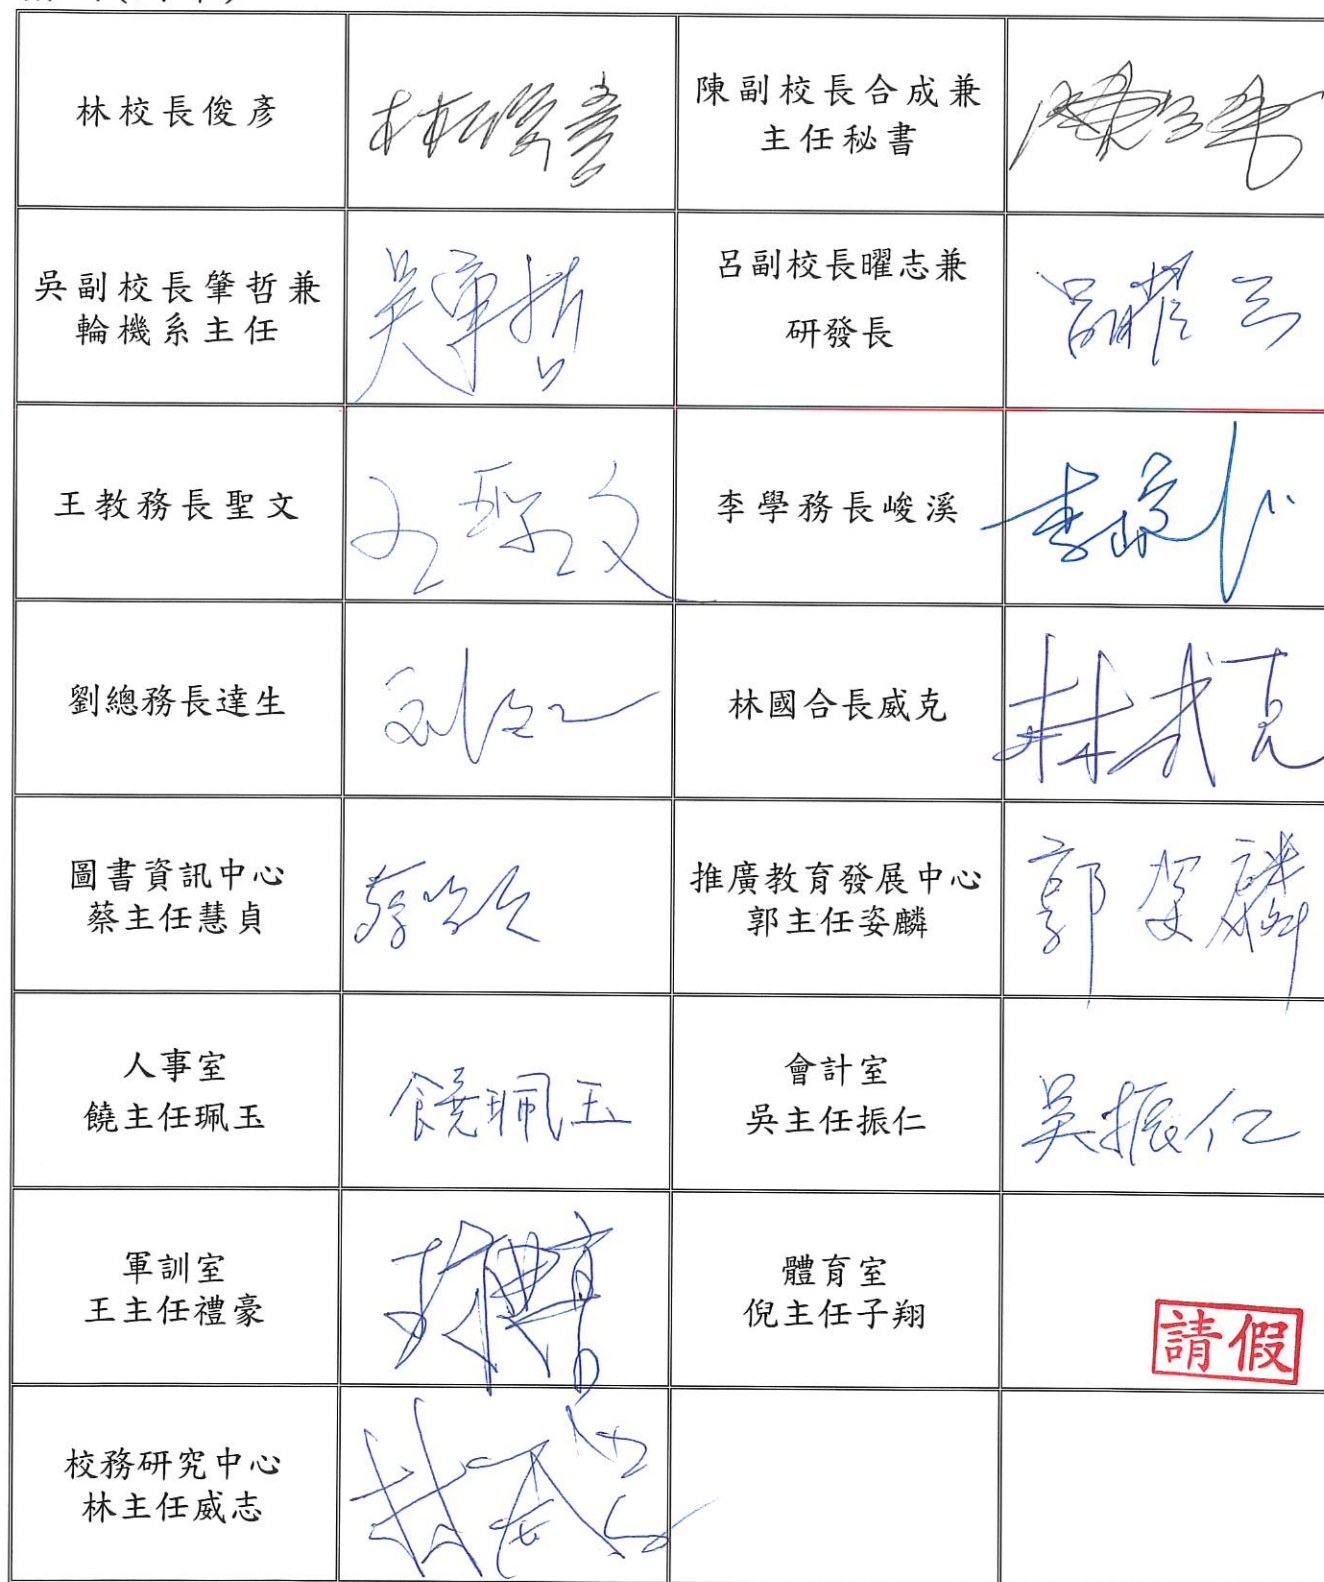 林校長俊彥
林俊彥
陳副校長合成兼
主任秘書
陳合成
吳副校長肇哲兼
輪機系主任
吳肇哲
呂副校長曜志兼
研發長
呂曜志
王教務長聖文
王聖文
李學務長峻溪
李峻
劉總務長達生
刘达生
林國合長威克
林威克
圖書資訊中心
蔡主任慧貞
蔡
推廣教育發展中心
郭主任姿麟
郭姿麟
人事室
饒主任珮玉
饒珮玉
會計室
吳主任振仁
吳振仁
軍訓室
王主任禮豪
體育室
倪主任子翔
請假
校務研究中心
林主任威志
林威志